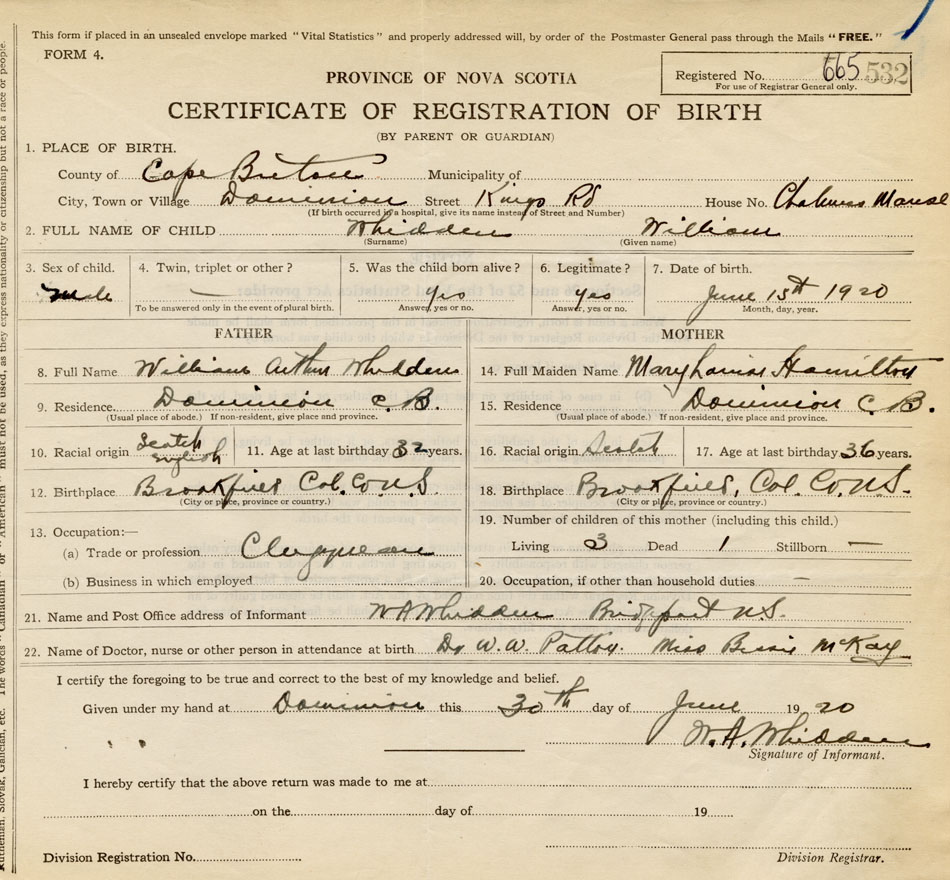 This form if placed in an unsealed envelope marked "Vital Statistics" and properly addressed will, by order of the Postmaster General pass through the Mails "FREE."
FORM 4.
Registered No. 665 532
For use of Registrar General only.
PROVINCE OF NOVA SCOTIA
CERTIFICATE OF REGISTRATION OF BIRTH
(BY PARENT OR GUARDIAN)
1. PLACE OF BIRTH.
County of Cape Breton Municipality of
City, Town or Village Dominion Street Kings Rd House No. Chalmers Manse
(If birth occurred in a hospital, give its name instead of Street and Number)
2. FULL NAME OF CHILD Whidden William
(Surname) (Given name)
3. Sex of child. 4. Twin, triplet or other? 5. Was the child born alive? 6. Legitimate? 7. Date of birth.
Male — yes yes June 15th 1920
To be answered only in the event of plural birth. Answer, yes or no. Answer, yes or no. Month, day, year.
FATHER MOTHER
8. Full Name William Arthur Whidden 14. Full Maiden Name Mary Hamilton
9. Residence Dominion C. B. 15. Residence Dominion C. B.
(Usual place of abode.) If non-resident, give place and province. (Usual place of abode.) If non-resident, give place and province.
10. Racial origin Scotch English 11. Age at last birthday 32 years. 16. Racial origin Scotch 17. Age at last birthday 36 years.
12. Birthplace Brookfield Col. Co. N.S. 18. Birthplace Brookfield, Col. Co. N.S.
(City or place, province or country.) (City or place, province or country.)
13. Occupation:— 19. Number of children of this mother (including this child.)
(a) Trade or profession Clergyman Living 3 Dead 1 Stillborn —
(b) Business in which employed 20. Occupation, if other than household duties —
21. Name and Post Office address of Informant W A Whidden Bridgeport N.S.
22. Name of Doctor, nurse or other person in attendance at birth Dr W. W. Patton. Miss Bessie McKay
I certify the foregoing to be true and correct to the best of my knowledge and belief.
Given under my hand at Dominion this 30th day of June 1920
W. A. Whidden
Signature of Informant.
I hereby certify that the above return was made to me at
on the day of 19
Division Registration No. Division Registrar.